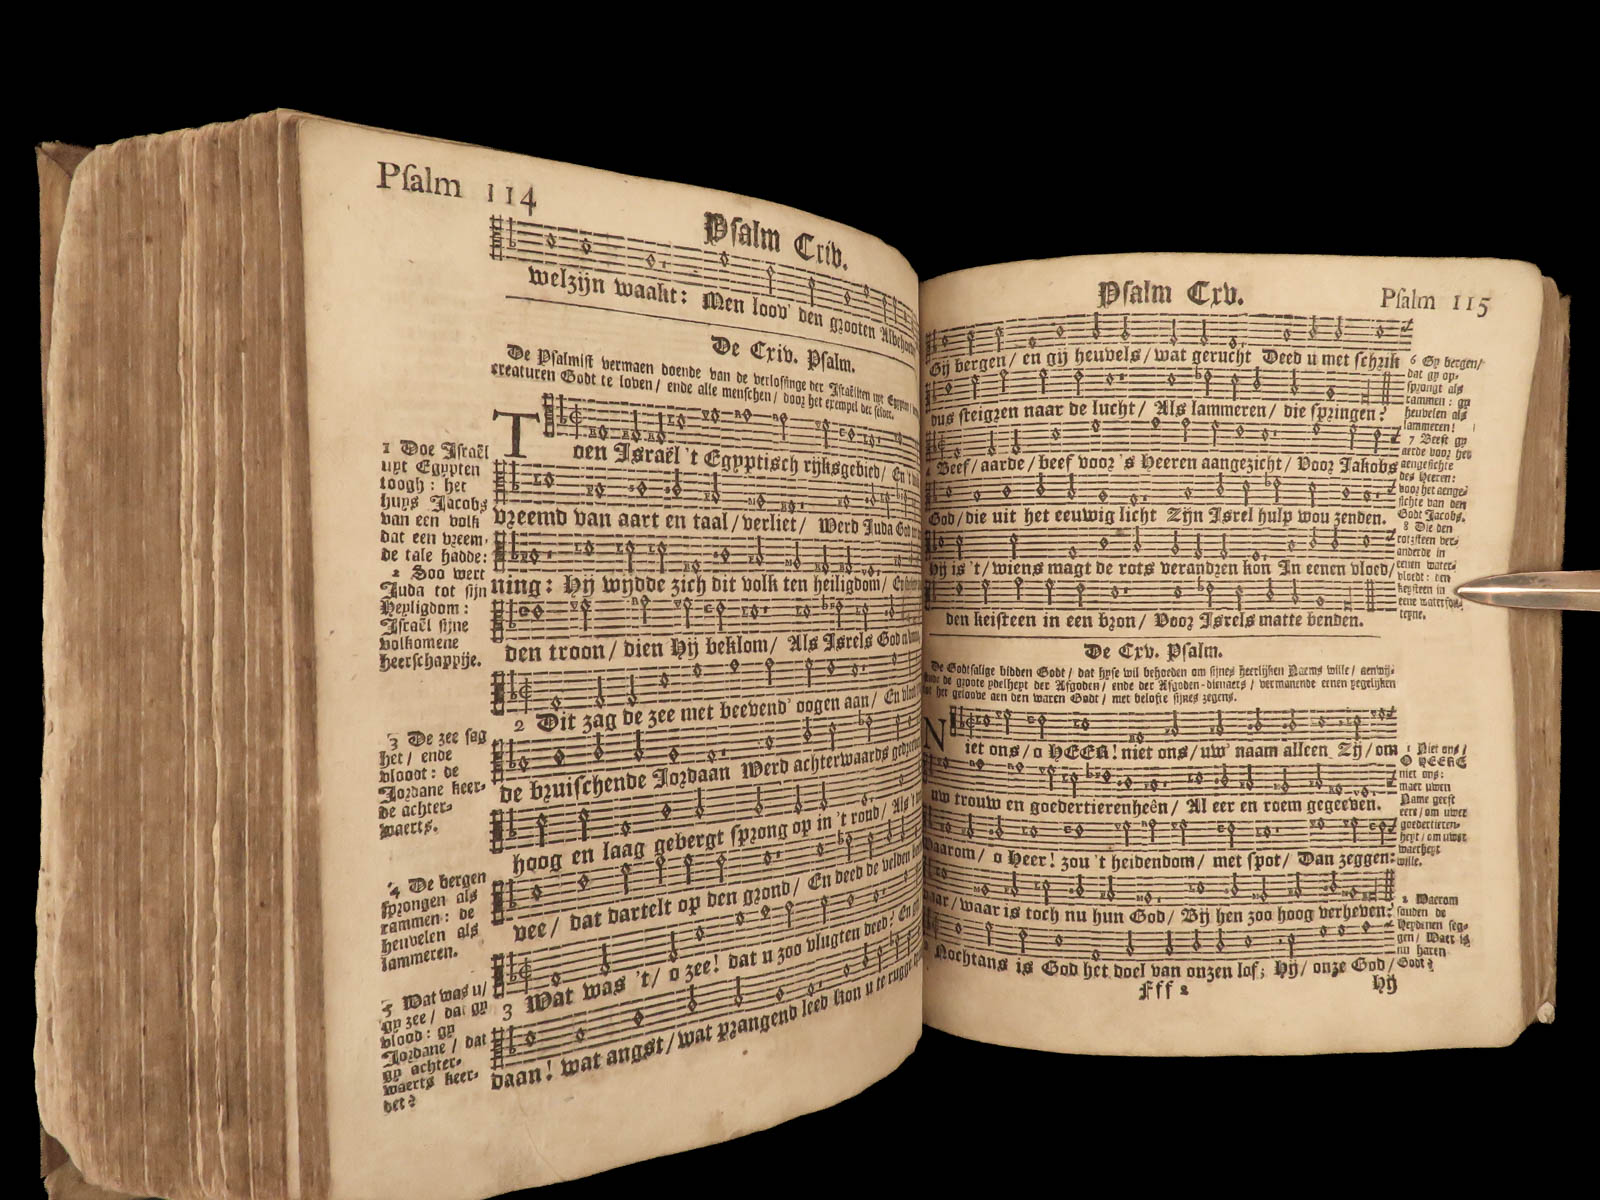 Psalm 114
Psalm Cxiv.
welzijn waakt: Men loov' den grooten
De Cxiv. Psalm.
De Psalmist vermaen doende van de verlossinge der Israëliten uyt Egypten /
creaturen Godt te loven / ende alle menschen / door het exempel der selver.
Toen Israël 't Egyptisch rijksgebied / En 't
vreemd van aart en taal / verliet / Werd Juda God
ning: Hij wijdde zich dit volk ten heiligdom /
den troon / dien Hij beklom / Als Isrels God
2 Dit zag de zee met beevend' oogen aan / En
de bruischende Jordaan Werd achterwaards
hoog en laag gebergt sprong op in 't rond / Als 't
vee / dat dartelt op den grond / En deed de velden
3 Wat was 't / o zee! dat u zoo vlugten deed?
daan! wat angst / wat prangend leed kon u te rugge
1 Doe Israël
uyt Egypten
toogh: het
huys Jacobs
van een volk
dat een vreem-
de tale hadde:
2 Soo wert
Juda tot sijn
Heyligdom:
Israël sijne
volkomene
heerschappije.
3 De zee sag
het / ende
vloodt: de
Jordane keer-
de achter-
waerts.
4 De bergen
sprongen als
rammen: de
heuvelen als
lammeren.
5 Wat was u /
gy zee / dat gy
vlood: gy
Jordane / dat
gy achter-
waerts keer-
det?
Psalm Cxv.
Psalm 115
Gij bergen / en gij heuvels / wat gerucht Deed u met schrik
dus steigren naar de lucht / Als lammeren / die springen?
4 Beef / aarde / beef voor 's Heeren aangezicht / Voor Jakobs
God / die uit het eeuwig licht Zijn Isrel hulp wou zenden.
Hij is 't / wiens magt de rots verandren kon In eenen vloed /
den keisteen in een bron / Voor Isrels matte benden.
De Cxv. Psalm.
De Godtsalige bidden Godt / dat hyse wil behoeden om sijnes heerlijken Naems wille / aenwij-
sende de groote ydelheyt der Afgoden / ende der Afgoden-dienaers / vermanende eenen yegelijken
tot het geloove aen den waren Godt / met belofte sijnes zegens.
Niet ons / o HEER! niet ons / uw' naam alleen Zij / om
uw trouw en goedertierenheên / Al eer en roem gegeeven.
Waarom / o Heer! zou 't heidendom / met spot / Dan zeggen:
waar / waar is toch nu hun God / Bij hen zoo hoog verheven?
2 Nochtans is God het doel van onzen lof; Hij / onze God /
Fff 2
Hij
6 Gy bergen /
dat gy op-
sprongt als
rammen: gy
heuvelen als
lammeren!
7 Beeft gy
aerde voor het
aengesichte
des Heeren:
voor het aenge-
sichte van den
Godt Jacobs.
8 Die den
rotzsteen ver-
anderde in
eenen water-
vloedt: den
keysteen in
eene waterfon-
teyne.
1 Niet ons /
O HEERE
niet ons:
maer uwen
Name geeft
eere / om uwer
goedertieren-
heyt / om uwer
waerheyt
wille.
2 Waerom
souden de
Heydenen seg-
gen / Waer is
nu haren
Godt?